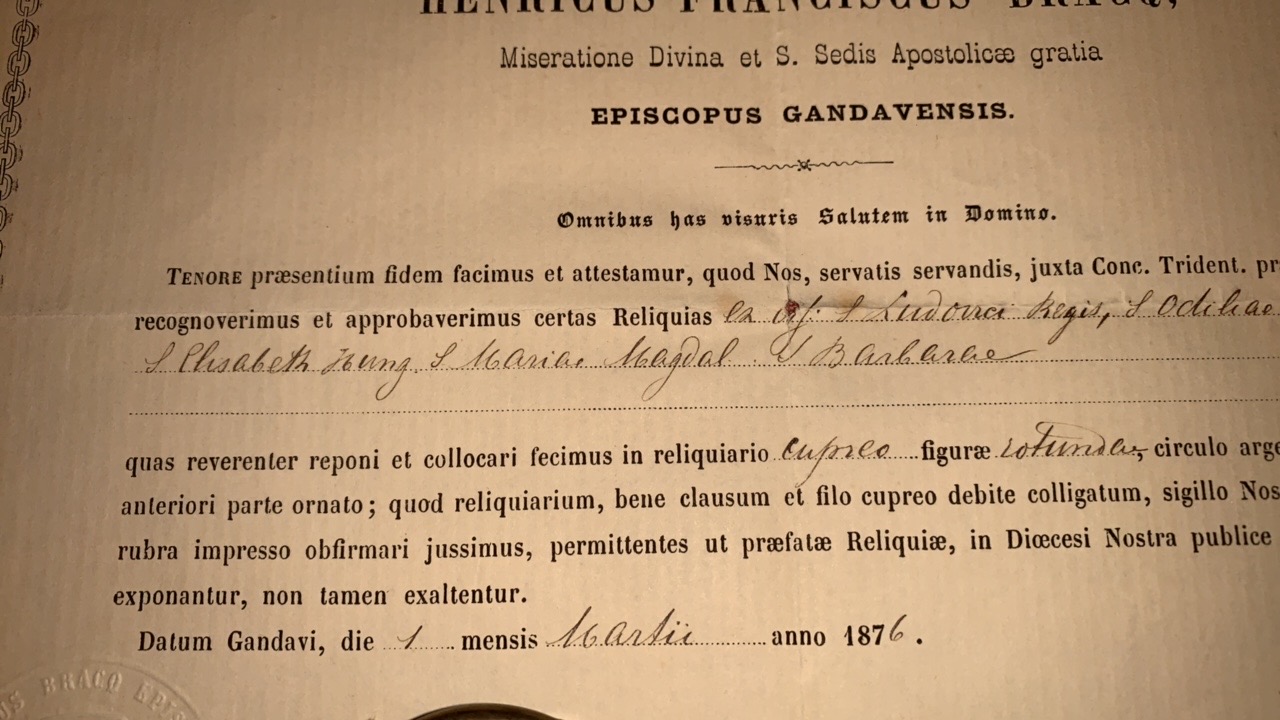 HENRICUS FRANCISCUS BRACQ,
Miseratione Divina et S. Sedis Apostolicæ gratia
EPISCOPUS GANDAVENSIS.
Omnibus has visuris Salutem in Domino.
TENORE præsentium fidem facimus et attestamur, quod Nos, servatis servandis, juxta Conc. Trident. pr
recognoverimus et approbaverimus certas Reliquias ex S Ludovici Regis, S Odiliae
S Elisabeth Hung. S Mariae Magdal. S Barbarae
quas reverenter reponi et collocari fecimus in reliquiario cupreo figuræ rotundae, circulo arge
anteriori parte ornato; quod reliquiarium, bene clausum et filo cupreo debite colligatum, sigillo Nos
rubra impresso obfirmari jussimus, permittentes ut præfatæ Reliquiæ, in Diœcesi Nostra publice
exponantur, non tamen exaltentur.
Datum Gandavi, die 1 mensis Martii anno 1876.
US BRACQ EPIS